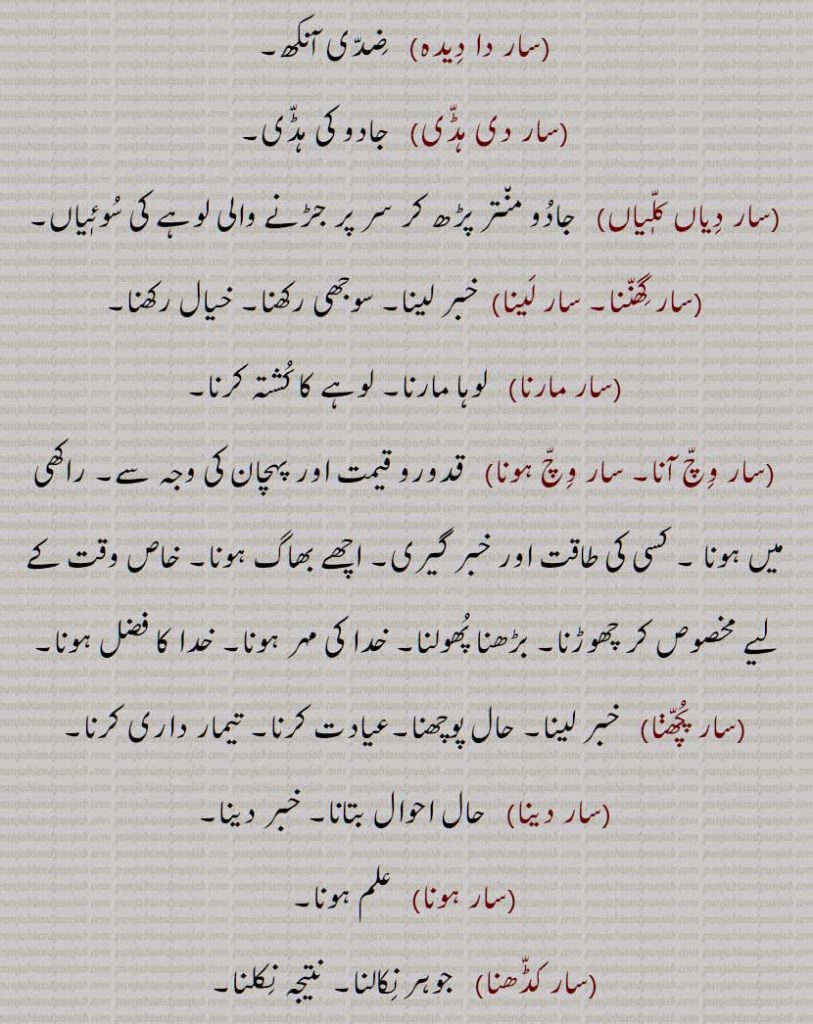 (سار دا دِیدہ) ضِدّی آنکھ۔
(سار دی ہڈّی) جادو کی ہڈّی۔
(سار دِیاں کلّیاں) جادُو منّتر پڑھ کر سر پر جڑنے والی لوہے کی سُوئیاں۔
(سار گِھنّنا۔ سار لَینا) خبر لینا۔ سوجھی رکھنا۔ خیال رکھنا۔
(سار مارنا) لوہا مارنا۔ لوہے کا کُشتہ کرنا۔
(سار وِچّ آنا۔ سار وِچّ ہونا) قدورو قیمت اور پہچان کی وجہ سے۔ راکھی
میں ہونا ۔ کسی کی طاقت اور خبر گیری۔ اچھے بھاگ ہونا۔ خاص وقت کے
لیے مخصوص کر چھوڑنا۔ بڑھنا پُھولنا۔ خدا کی مہر ہونا۔ خدا کا فضل ہونا۔
(سار پُچّھݨا) خبر لینا۔ حال پوچھنا۔عیادت کرنا۔ تیمار داری کرنا۔
(سار دینا) حال احوال بتانا۔ خبر دینا۔
(سار ہونا) علم ہونا۔
(سار کڈّھنا) جوہر نِکالنا۔ نتیجہ نِکلنا۔